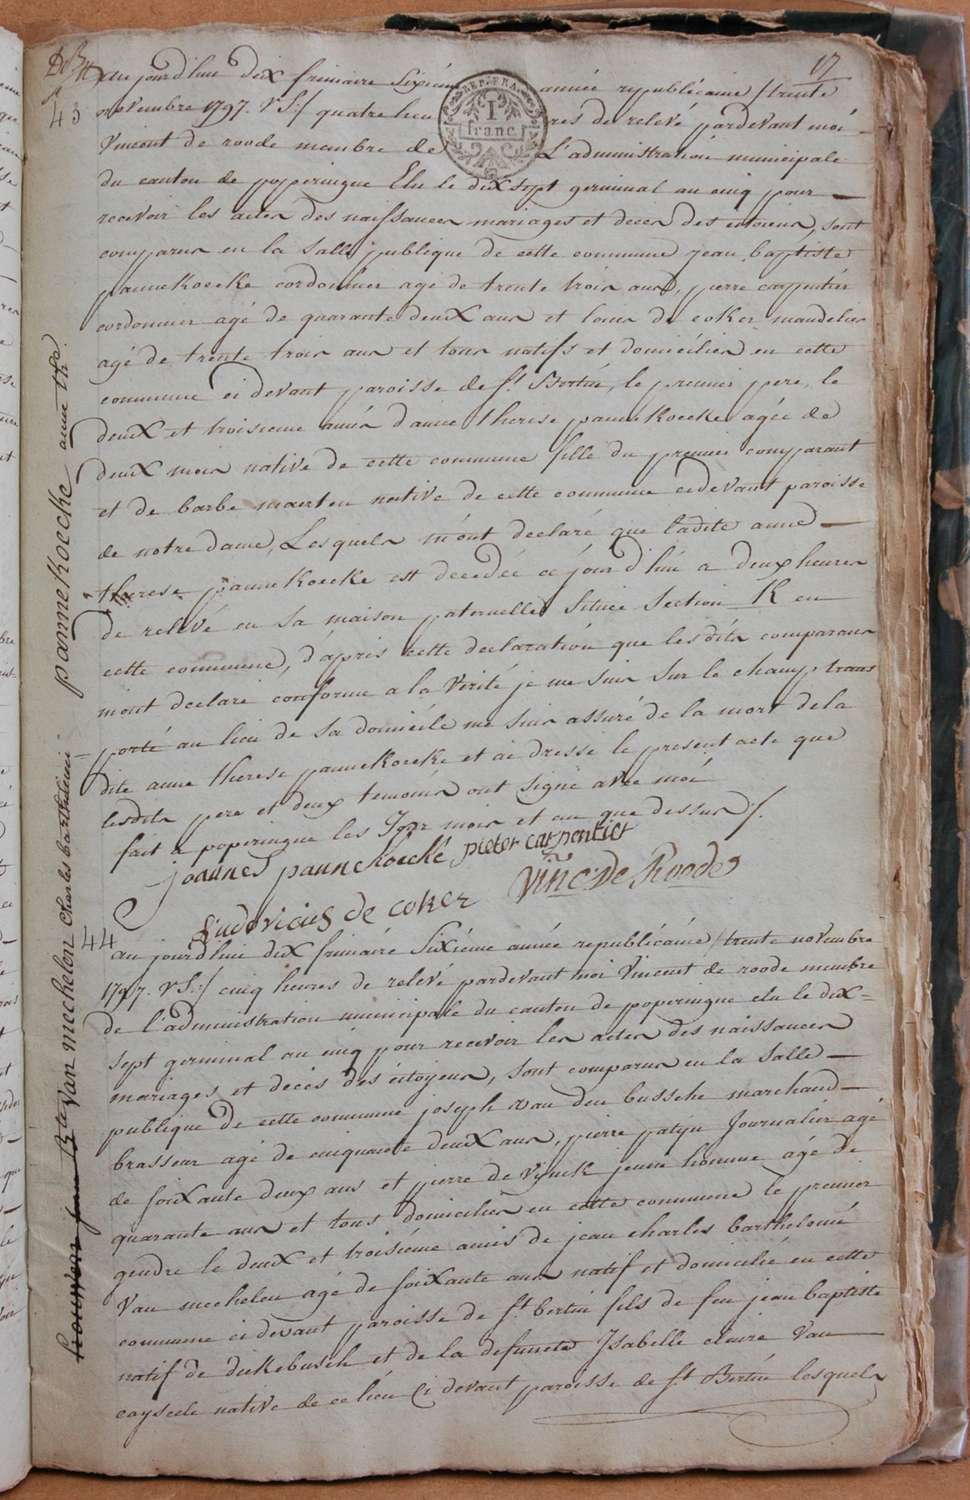 17
43
au jourd'hui dix frimaire sixiéme année republicaine /trente
REP. FRA.
1
franc
novembre 1797. VS:/ quatre heures de relevé pardevant moi
Vincent de roode membre de L'administration municipale
du canton de poperingue Elu le dix sept germinal au cinq pour
recevoir les actes des naissances mariages et deces des citoiens, sont
comparus en la salle publique de cette commune jean baptiste
pannekoecke cordonnier agé de trente trois ans, pierre carpentier
cordonnier agé de quarante deux ans et louis de coker mandelier
agé de trente trois ans et tous natifs et domiciliés en cette
commune ci devant paroisse de st. Bertin, le premier pere, le
deux et troisieme amis d'anne therese pannekoecke agée de
deux mois native de cette commune fille du premier comparant
et de barbe maerten native de cette commune cidevant paroisse
de notre dame, Lesquels m'ont declaré que ladite anne
therese pannekoecke est decedée ce jourd'hui a deux heures
de relevé en sa maison paternelle située section K en
cette commune, d'apris cette declaration que lesdits comparans
mont declaré conforme a la verité je me suis sur le champ trans
porté au lieu de sa domicile me suis assuré de la mort de la
dite anne therese pannekoecke et ai dressé le present acte que
lesdits pere et deux temoins ont signé avec moi
fait a poperingue les jour mois et an que dessus /.
joannes pannekoecke pieter carpentier
Ludovicus de coker Vinc. De Roode
pannekoecke anne thse.
44
au jourd'hui dix frimaire sixiéme année republicaine /trente novembre
1797. VS:/ cinq heures de relevé pardevant moi Vincent de roode membre
de l'administration municipale du canton de poperingue elu le dix=
sept germinal au cinq pour recevoir les actes des naissances
mariages et decès des citoyens, sont comparus en la salle
publique de cette commune joseph van den bussche marchand
brasseur agé de cinquante deux ans, pierre patyn journalier agé
de soixante deux ans et pierre de Vynck jeune homme agé de
quarante ans et tous domiciliés en cette commune le premier
gendre le deux et troisiéme amis de jean charles barthelomé
Van mechelen agé de soixante ans natif et domicilié en cette
commune ci devant paroisse de st. bertin fils de feu jean baptiste
natif de dickebusch et de la defuncte Isabelle claire Van
cayseele native de ce lieu ci devant paroisse de st. Bertin lesquels
Van mechelen Charles barthelemi